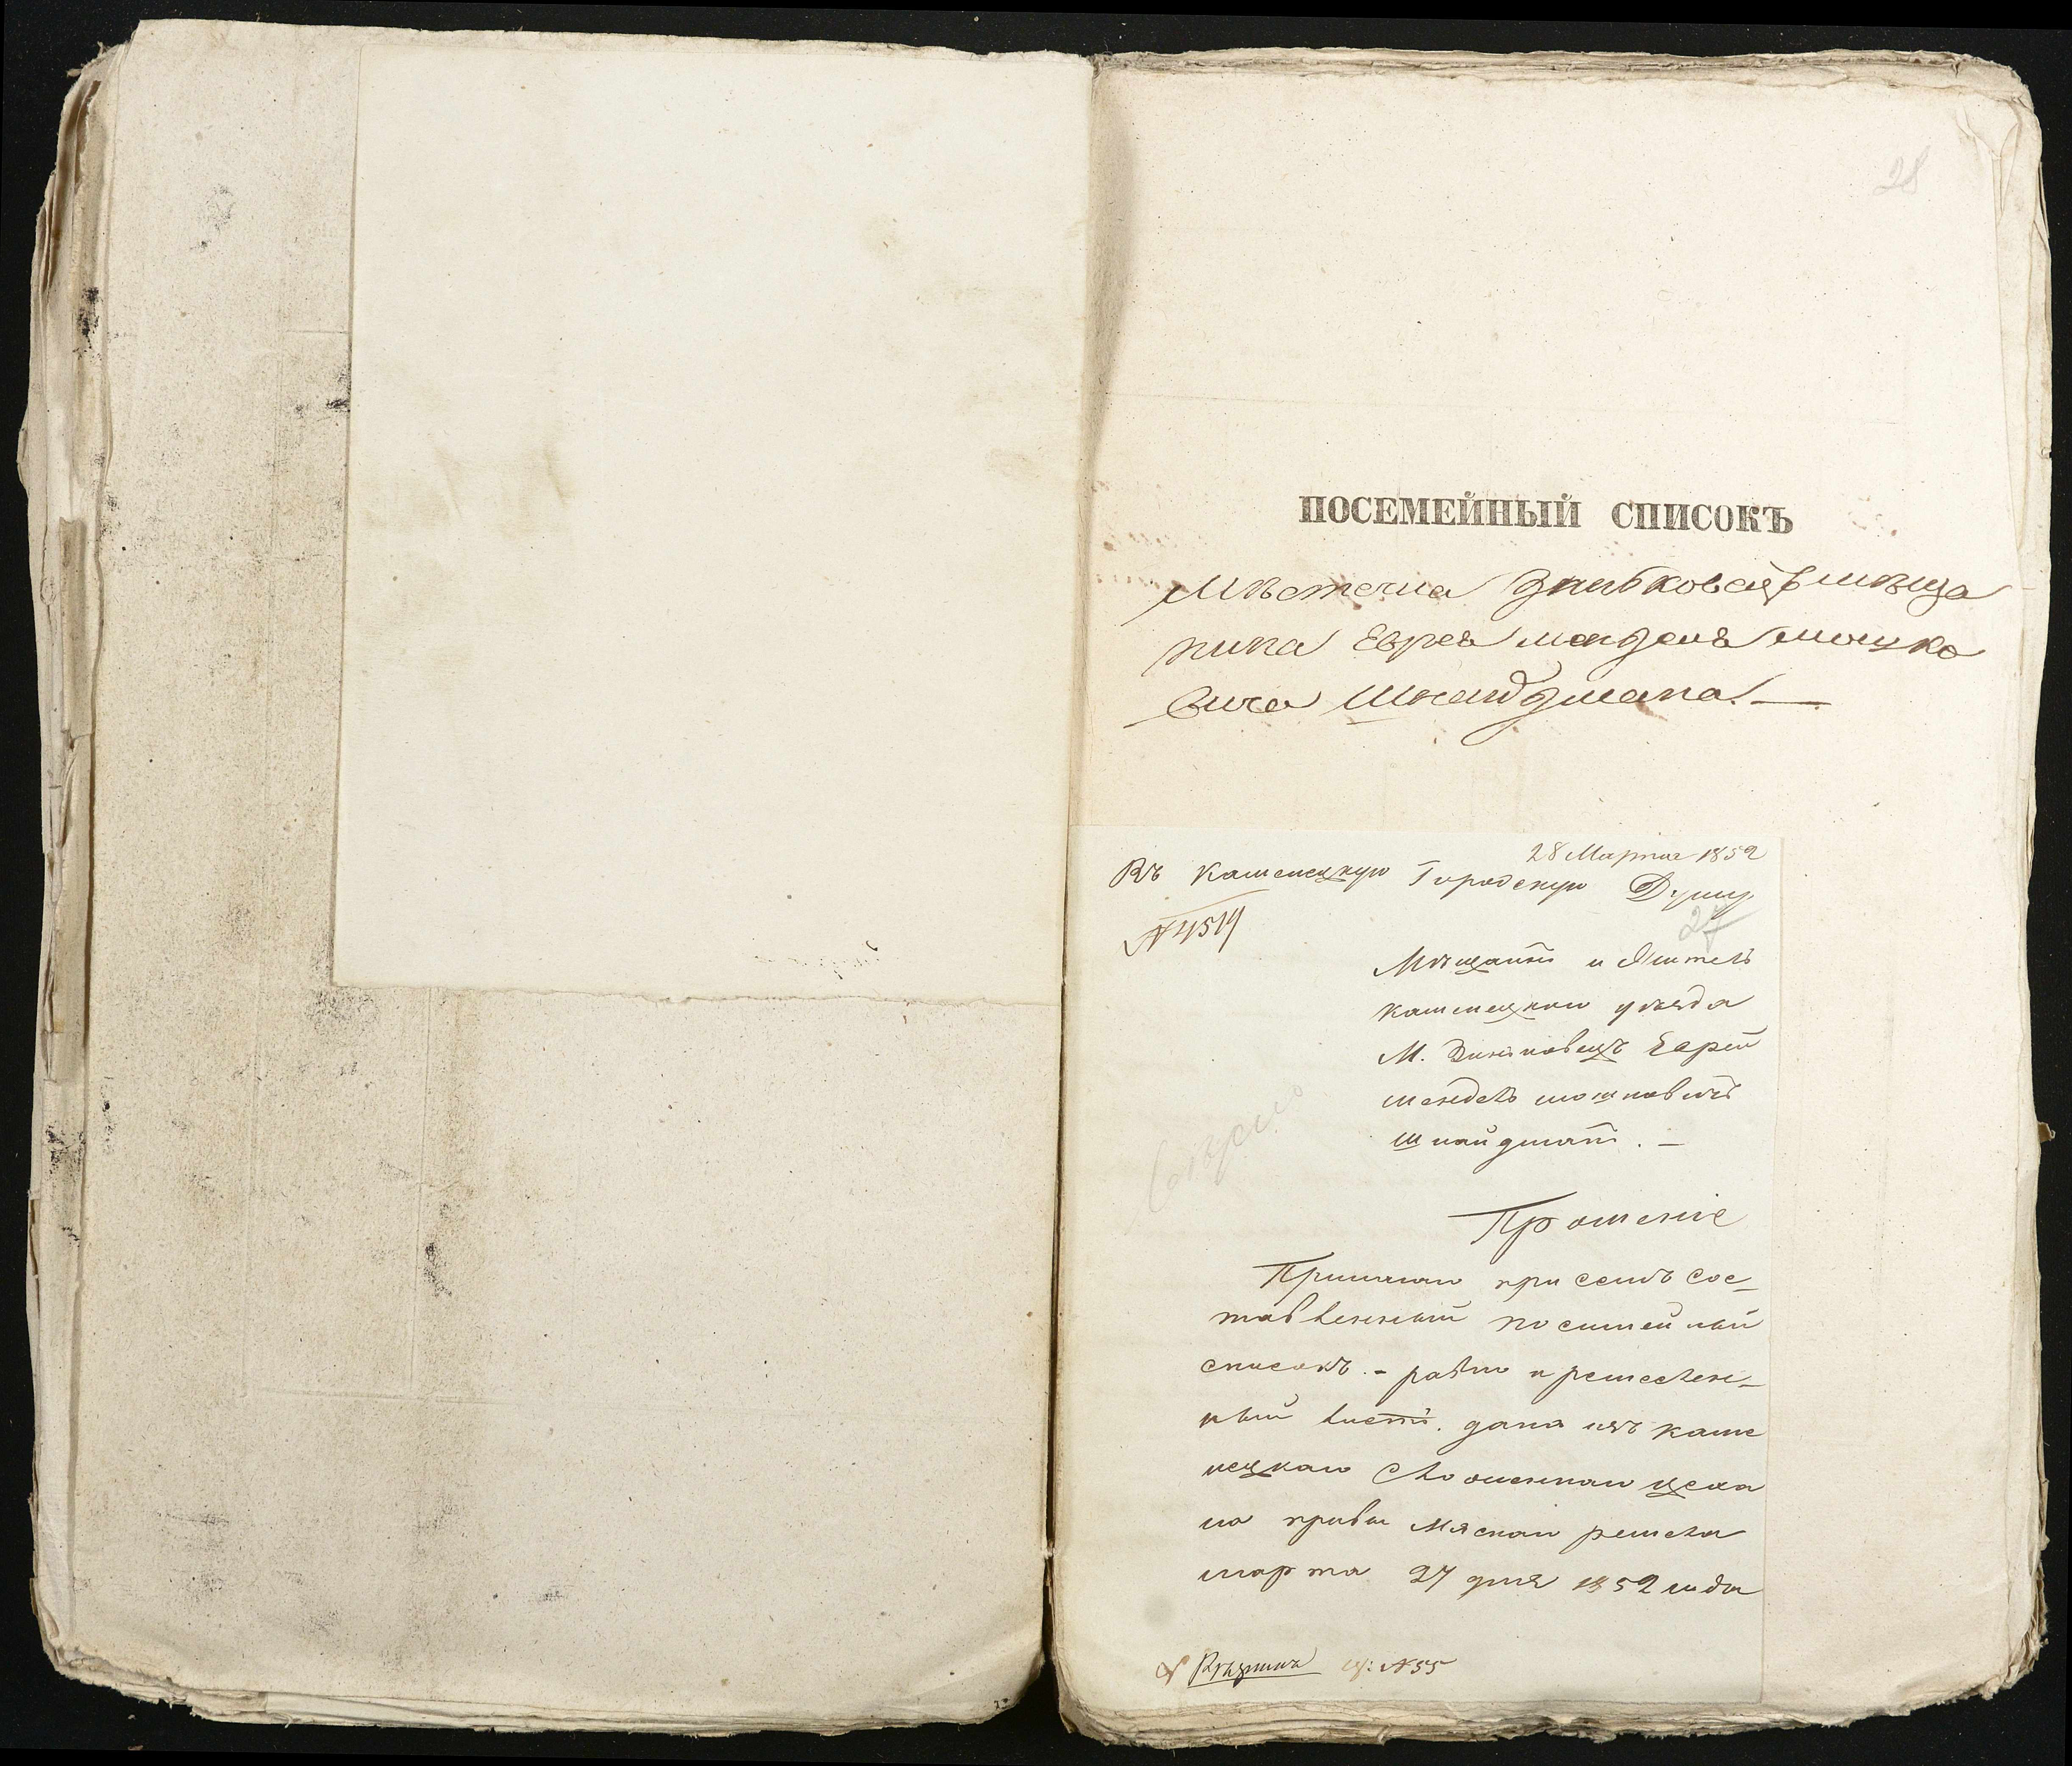 28
ПОСЕМЕЙНЫЙ СПИСОКЪ
Мѣстечка Зинковецъ мѣща
нина Еврея Менделя Мошко
вича Шнайдмана. —
28 Марта 1852
Въ Каменецкую Городскую Думу
№ 4519
27
Мѣщанинъ и Житель
Каменецкаго уѣзда
М. Зиньковецъ Еврей
Мендель Мошковичъ
Шнайдманъ. —
Прошеніе
Прилагаю при семъ сос-
тавленный посемейный
списокъ - равно и ремеслен-
ный листъ. данъ изъ Каме
нецкаго цеха
марта 27 дня 1852 года
№ 55